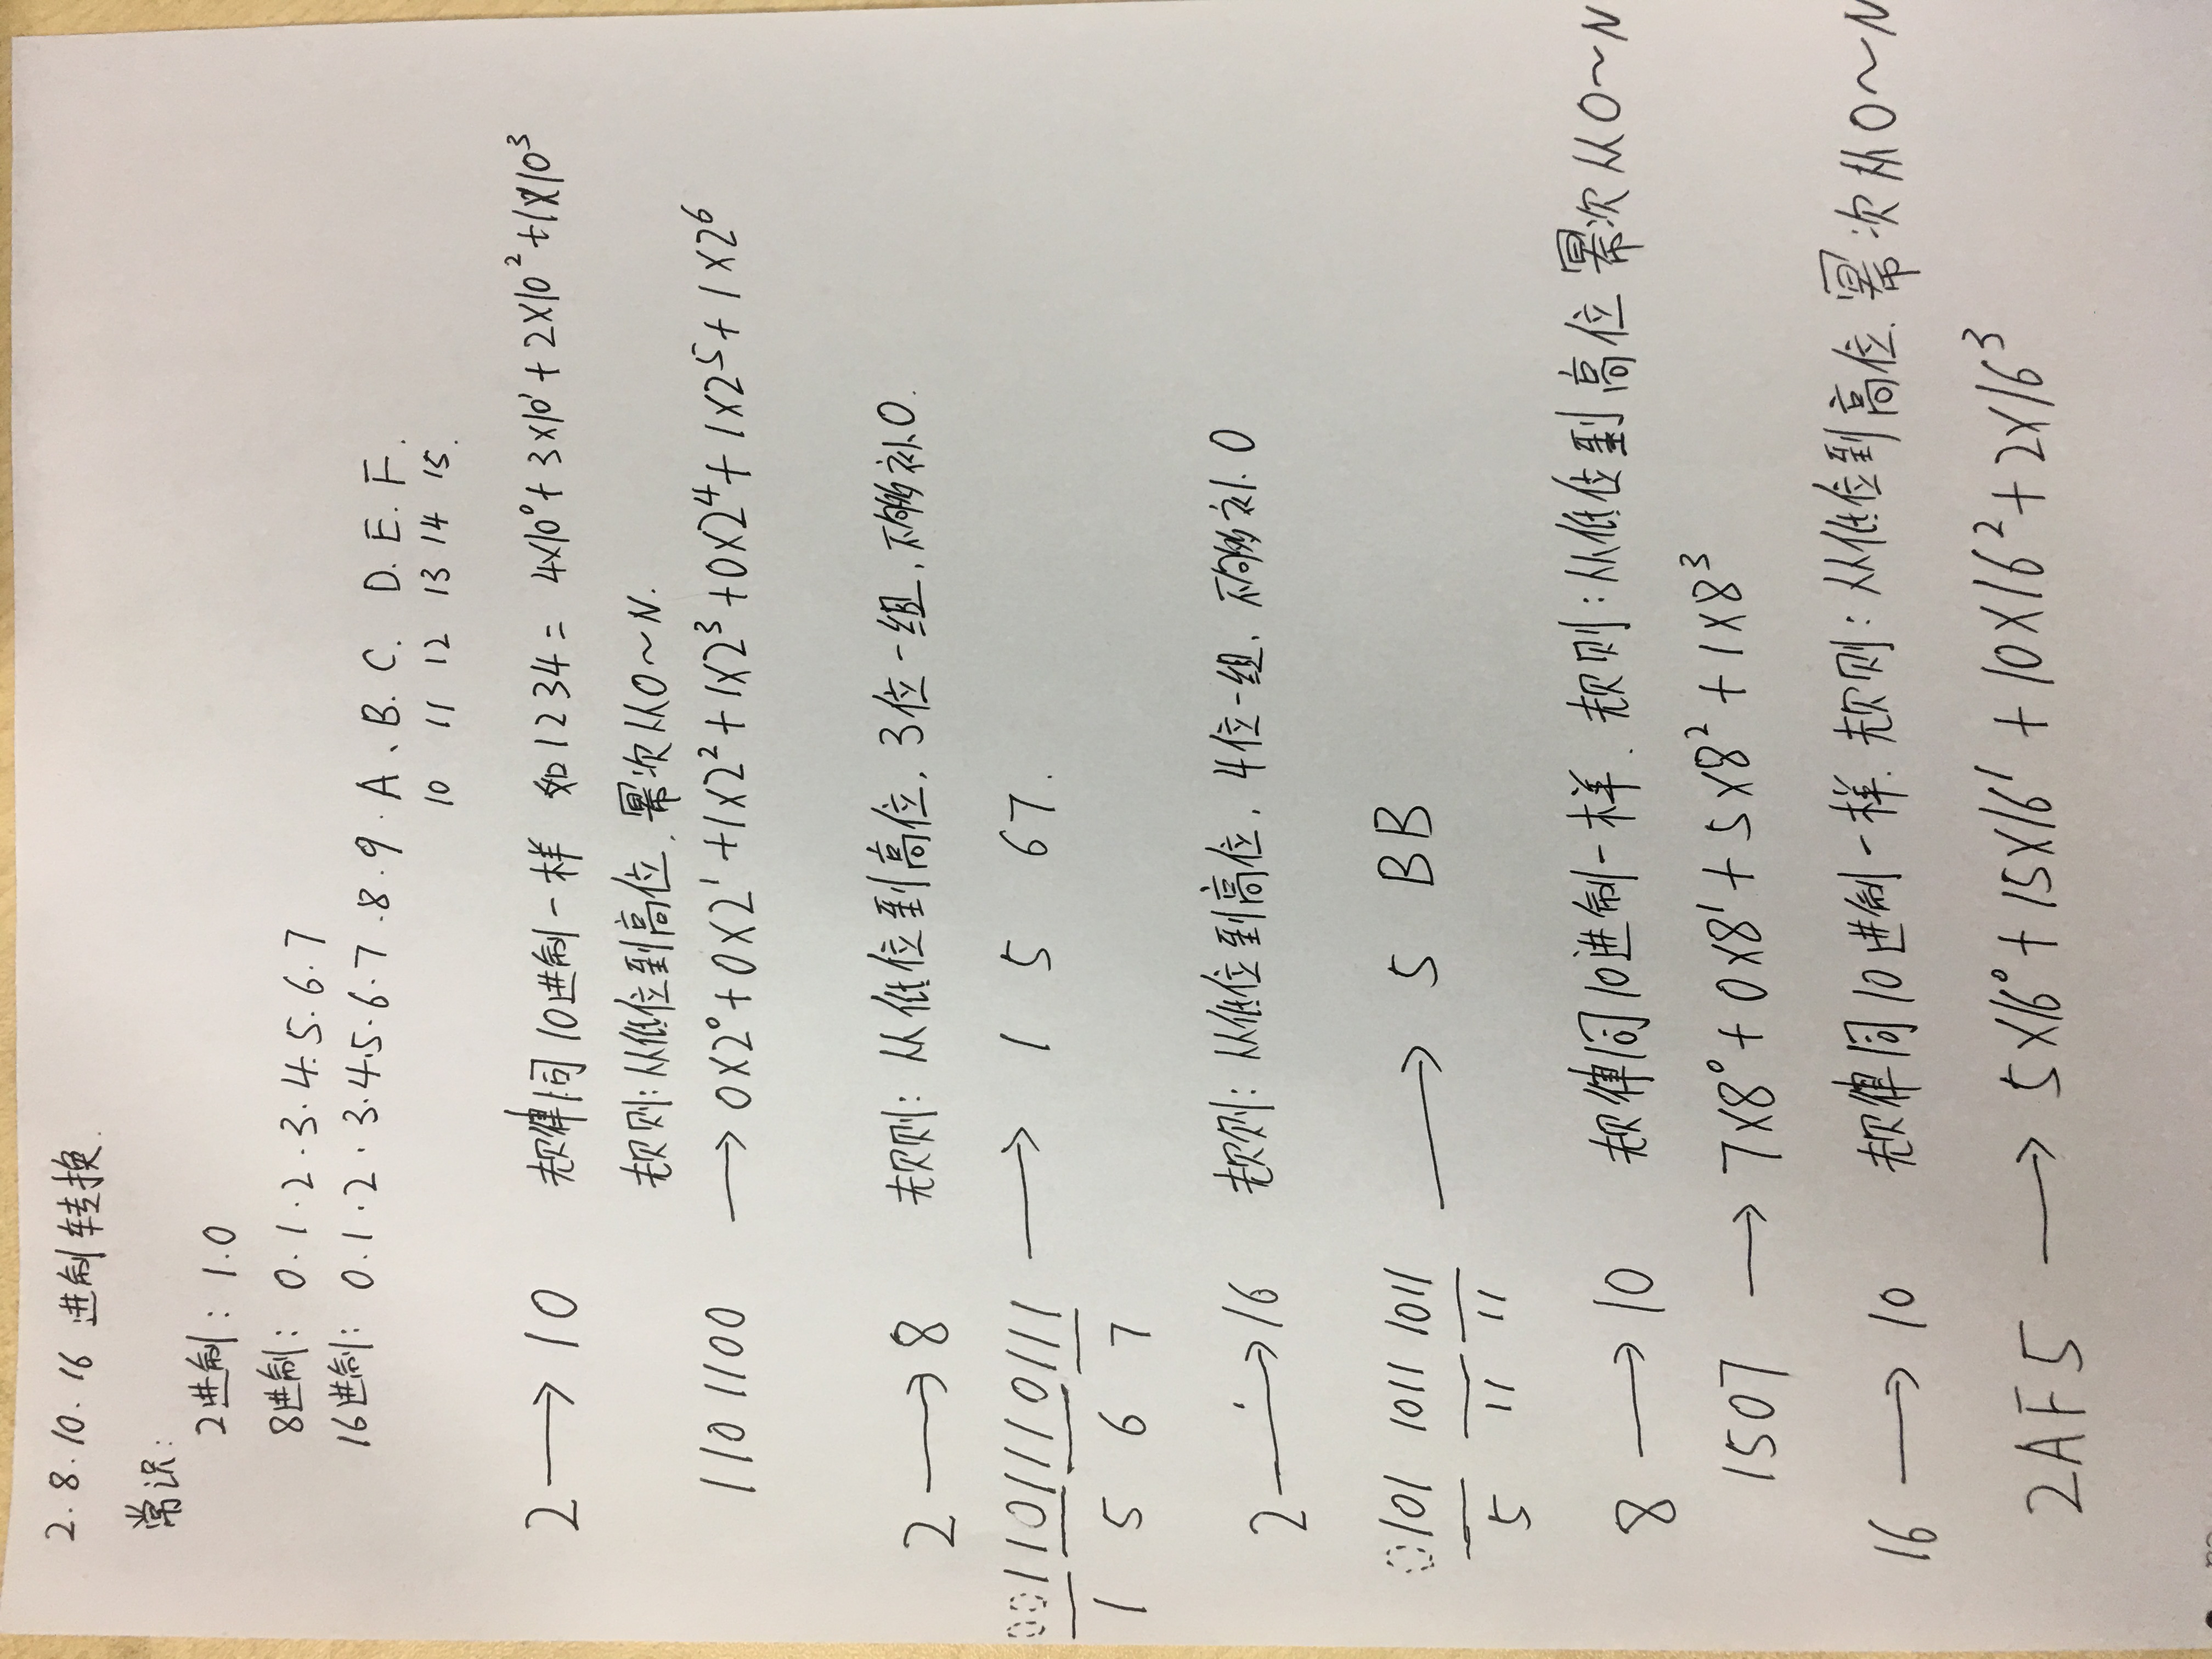 2.8.10.16 进制转换.
常识:
2进制: 1.0
8进制: 0.1.2.3.4.5.6.7
16进制: 0.1.2.3.4.5.6.7.8.9.A、B.C. D.E.F.
10 11 12 13 14 15.
2 → 10 规律同10进制一样 如1234= 4×10⁰+3×10¹+2×10²+1×10³
规则:从低位到高位.幂次从0~N.
1101100 → 0×2⁰+0×2¹+1×2²+1×2³+0×2⁴+1×2⁵+1×2⁶
2 → 8 规则: 从低位到高位, 3位一组,不够补0.
001101110111 → 1 5 67.
1 5 6 7
2 → 16 规则: 从低位到高位, 4位一组, 不够补0
0101 1011 1011 → 5 BB
5 11 11
8 → 10 规律同10进制一样. 规则:从低位到高位 幂次从0~N
1507 → 7×8⁰+0×8¹+5×8²+1×8³
16 → 10 规律同10进制一样. 规则:从低位到高位.幂次从0~N
2AF5 → 5×16⁰+15×16¹+10×16²+2×16³